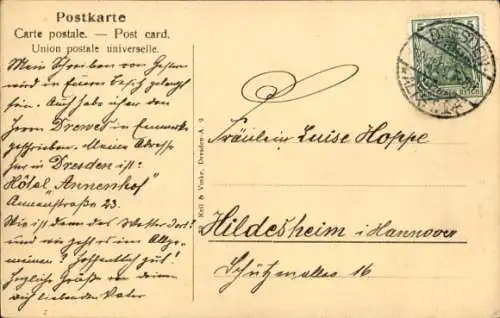 Postkarte
Carte postale. — Post card.
Union postale universelle.
Mein Schreiben von Gestern
wird in Euren Besitz gelangt
sein. Auch habe ich an den
Herrn Drewes in
geschrieben. Meine Adresse
hier in Dresden ist:
Hôtel "Annenhof"
Annenstraße 23.
Wie ist denn das Wetter dort?
und wie geht es im Allge-
meinen? Hoffentlich gut!
Herzliche Grüße von Deinem
Dich liebenden Vater
Keil & Vieke, Dresden-A. 2
Fräulein Luise Hoppe
Hildesheim i. Hannover
Schützenallee 16
5
DRESDEN